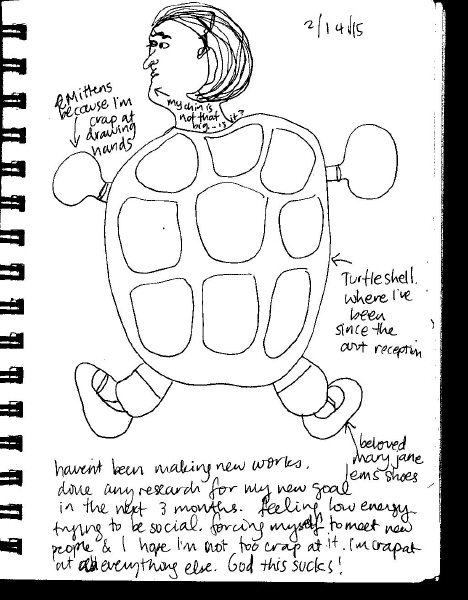 2/14/15
Mittens
because I'm
crap at
drawing
hands
my chin is
not that
big - is it?
Turtleshell.
where I've
been
since the
art reception
beloved
mary jane
jems shoes
haven't been making new works.
done any research for my new goal
in the next 3 months. feeling low energy.
trying to be social. forcing myself to meet new
people & I hope I'm not too crap at it. I'm crap at
at everything else. God this sucks!